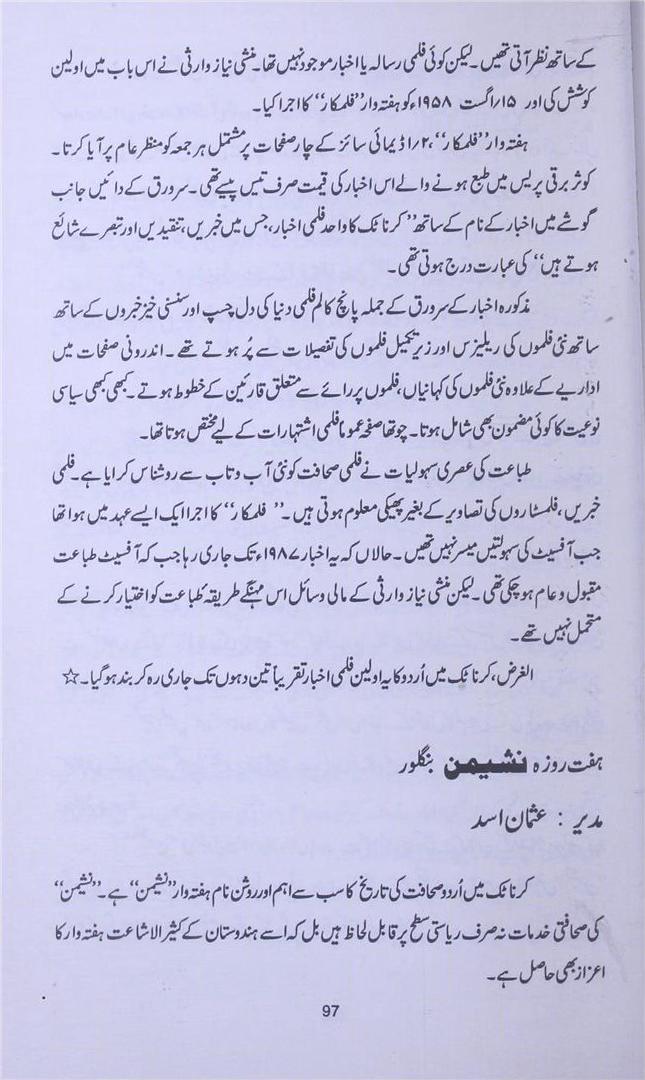 کے ساتھ نظر آتی تھیں۔ لیکن کوئی فلمی رسالہ یا اخبار موجود نہیں تھا۔ منشی نیاز وارثی نے اس باب میں اولین
کوشش کی اور ۱۵/اگست ۱۹۵۸ء کو ہفتہ وار ”فلمکار“ کا اجرا کیا۔
ہفتہ وار ”فلمکار“، ۱/۲ ڈیمائی سائز کے چار صفحات پر مشتمل ہر جمعہ کو منظر عام پر آیا کرتا۔
کوثر برقی پریس میں طبع ہونے والے اس اخبار کی قیمت صرف تیس پیسے تھی۔ سرورق کے دائیں جانب
گوشے میں اخبار کے نام کے ساتھ ”کرناٹک کا واحد فلمی اخبار، جس میں خبریں، تنقیدیں اور تبصرے شائع
ہوتے ہیں“ کی عبارت درج ہوتی تھی۔
مذکورہ اخبار کے سرورق کے جملہ پانچ کالم فلمی دنیا کی دل چسپ اور سنسنی خیز خبروں کے ساتھ
ساتھ نئی فلموں کی ریلیزس اور زیر تکمیل فلموں کی تفصیلات سے پُر ہوتے تھے۔ اندرونی صفحات میں
اداریے کے علاوہ نئی فلموں کی کہانیاں، فلموں پر رائے سے متعلق قارئین کے خطوط ہوتے۔ کبھی کبھی سیاسی
نوعیت کا کوئی مضمون بھی شامل ہوتا۔ چوتھا صفحہ عموماً فلمی اشتہارات کے لیے مختص ہوتا تھا۔
طباعت کی عصری سہولیات نے فلمی صحافت کو نئی آب و تاب سے روشناس کرایا ہے۔ فلمی
خبریں، فلمسٹاروں کی تصاویر کے بغیر پھیکی معلوم ہوتی ہیں۔ ”فلمکار“ کا اجرا ایک ایسے عہد میں ہوا تھا
جب آفسیٹ کی سہولتیں میسر نہیں تھیں۔ حالاں کہ یہ اخبار ۱۹۸۷ء تک جاری رہا جب کہ آفسیٹ طباعت
مقبول و عام ہو چکی تھی۔ لیکن منشی نیاز وارثی کے مالی وسائل اس مہنگے طریقۂ طباعت کو اختیار کرنے کے
متحمل نہیں تھے۔
الغرض، کرناٹک میں اُردو کا یہ اولین فلمی اخبار تقریباً تین دہوں تک جاری رہ کر بند ہو گیا۔ ☆
ہفت روزہ نشیمن بنگلور
مدیر : عثمان اسد
کرناٹک میں اُردو صحافت کی تاریخ کا سب سے اہم اور روشن نام ہفتہ وار ”نشیمن“ ہے۔ ”نشیمن“
کی صحافتی خدمات نہ صرف ریاستی سطح پر قابل لحاظ ہیں بل کہ اسے ہندوستان کے کثیر الاشاعت ہفتہ وار کا
اعزاز بھی حاصل ہے۔
97